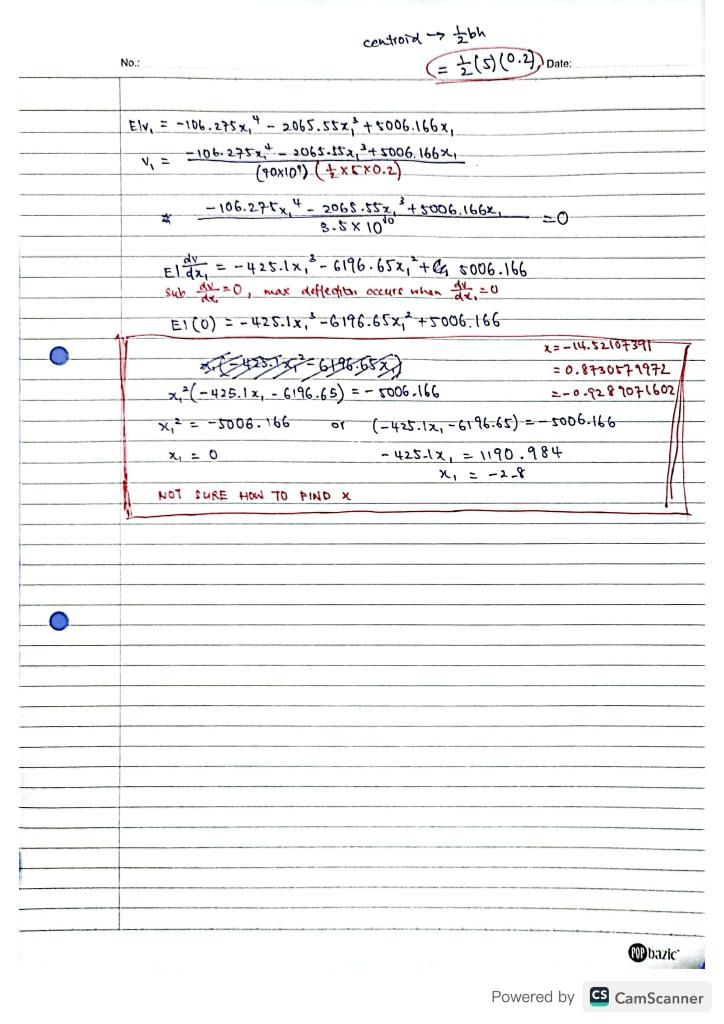 centroid → ½bh
No.: = ½(5)(0.2) Date:
EIv₁ = -106.275x₁⁴ - 2065.55x₁³ + 5006.166x₁
v₁ = (-106.275x₁⁴ - 2065.55x₁³ + 5006.166x₁) / ((70x10⁹)(½x5x0.2))
(-106.275x₁⁴ - 2065.55x₁³ + 5006.166x₁) / (3.5 x 10¹⁰) = 0
EI dv/dx₁ = -425.1x₁³ - 6196.65x₁² + 5006.166
Sub dv/dx₁ = 0, max deflection occurs when dv/dx₁ = 0
EI(0) = -425.1x₁³ - 6196.65x₁² + 5006.166
x = -14.52107391
x₁(-425.1x₁² - 6196.65x₁)
= 0.8730579972
x₁²(-425.1x₁ - 6196.65) = -5006.166
= -0.9289071602
x₁² = -5006.166 or (-425.1x₁ - 6196.65) = -5006.166
x₁ = 0 -425.1x₁ = 1190.984
x₁ = -2.8
NOT SURE HOW TO FIND X
POP bazic
Powered by CS CamScanner